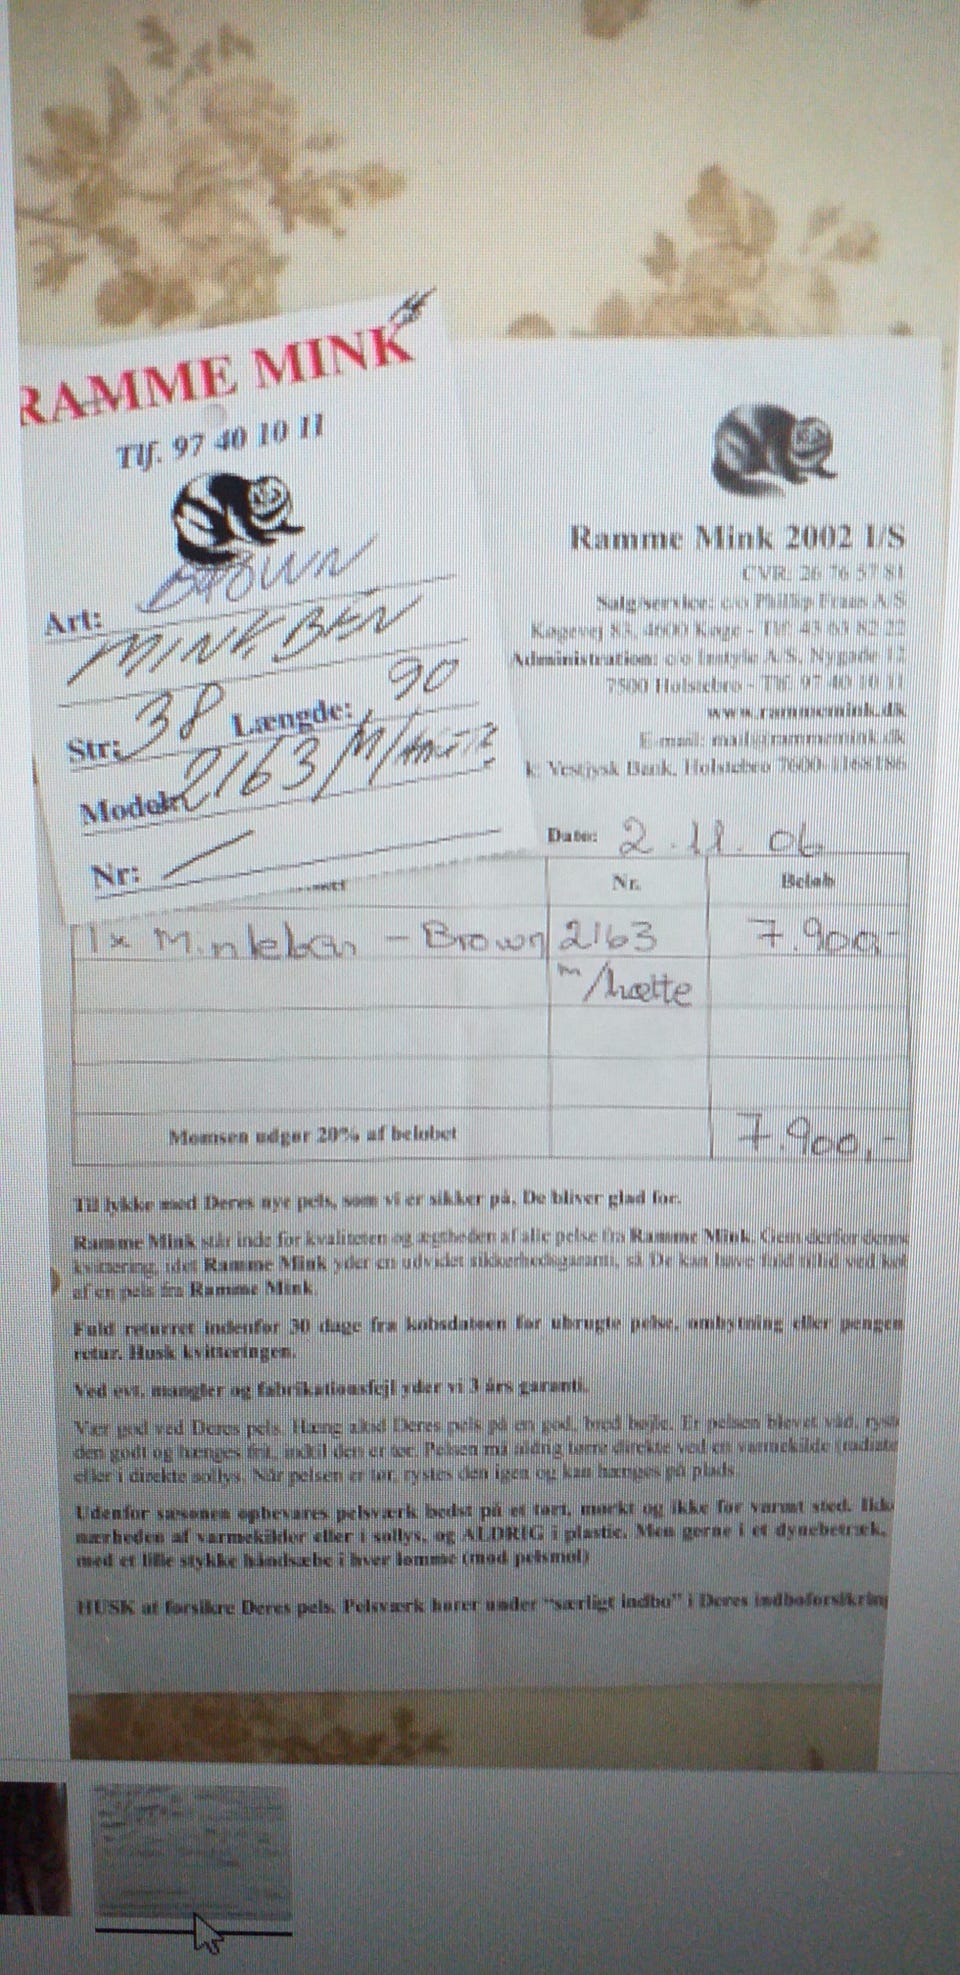 RAMME MINK
Tlf. 97 40 10 11
Art: BROWN
MINKBEN
Str: 38 Længde: 90
Model: 2163 M/HÆTTE
Nr:
Ramme Mink 2002 I/S
CVR. 26 76 57 81
Salg/service: c/o Phillip Fraas A/S
Køgevej 83, 4600 Køge - Tlf. 43 63 82 22
Administration: c/o Instyle A/S, Nygade 12
7500 Holstebro - Tlf. 97 40 10 11
www.rammemink.dk
E-mail: mail@rammemink.dk
k: Vestjysk Bank, Holstebro 7600-1168186
Dato: 2.11.06
Nr. Beløb
1x Minkben - Brown 2163 7.900,-
m/hætte
Momsen udgør 20% af beløbet 7.900,-
Til lykke med Deres nye pels, som vi er sikker på, De bliver glad for.
Ramme Mink står inde for kvaliteten og ægtheden af alle pelse fra Ramme Mink. Gem derfor denne
kvittering, idet Ramme Mink yder en udvidet sikkerhedsgaranti, så De kan have fuld tillid ved køb
af en pels fra Ramme Mink.
Fuld returret indenfor 30 dage fra købsdatoen for ubrugte pelse, ombytning eller pengene
retur. Husk kvitteringen.
Ved evt. mangler og fabrikationsfejl yder vi 3 års garanti.
Vær god ved Deres pels. Hæng altid Deres pels på en god, bred bøjle. Er pelsen blevet våd, ryst
den godt og hænges frit, indtil den er tør. Pelsen må aldrig tørre direkte ved en varmekilde (radiato
eller i direkte sollys. Når pelsen er tør, rystes den igen og kan hænges på plads.
Udenfor sæsonen opbevares pelsværk bedst på et tørt, mørkt og ikke for varmt sted. Ikke
nærheden af varmekilder eller i sollys, og ALDRIG i plastic. Men gerne i et dynebetræk,
med et lille stykke håndsæbe i hver lomme (mod pelsmøl)
HUSK at forsikre Deres pels. Pelsværk hører under "særligt indbo" i Deres indboforsikring